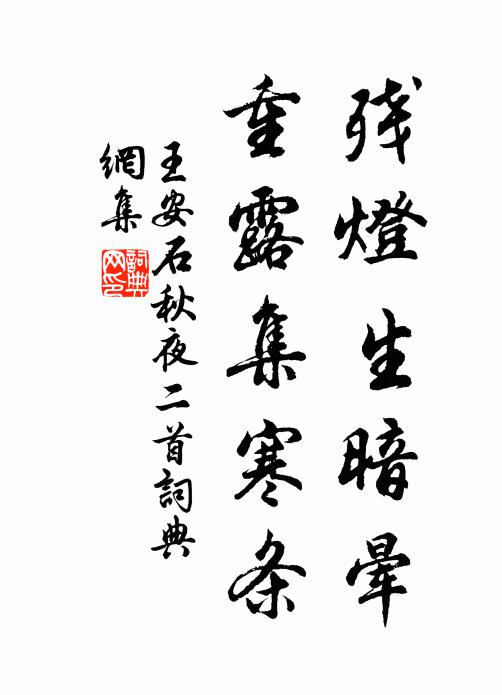 残燈生暗暈
重露集寒条
王安石秋夜二首詞典
網集
詞典
网印